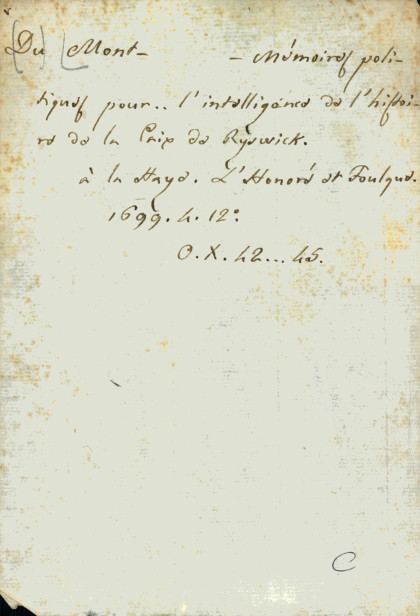 (Du) Mont - - Mémoires poli-
tiques pour.. l'intelligence de l'histoi-
re de la Paix de Ryswick.
à la Haye. L'Honoré et Foulque.
1699. 4. 12°.
O. X. 42...45.
C